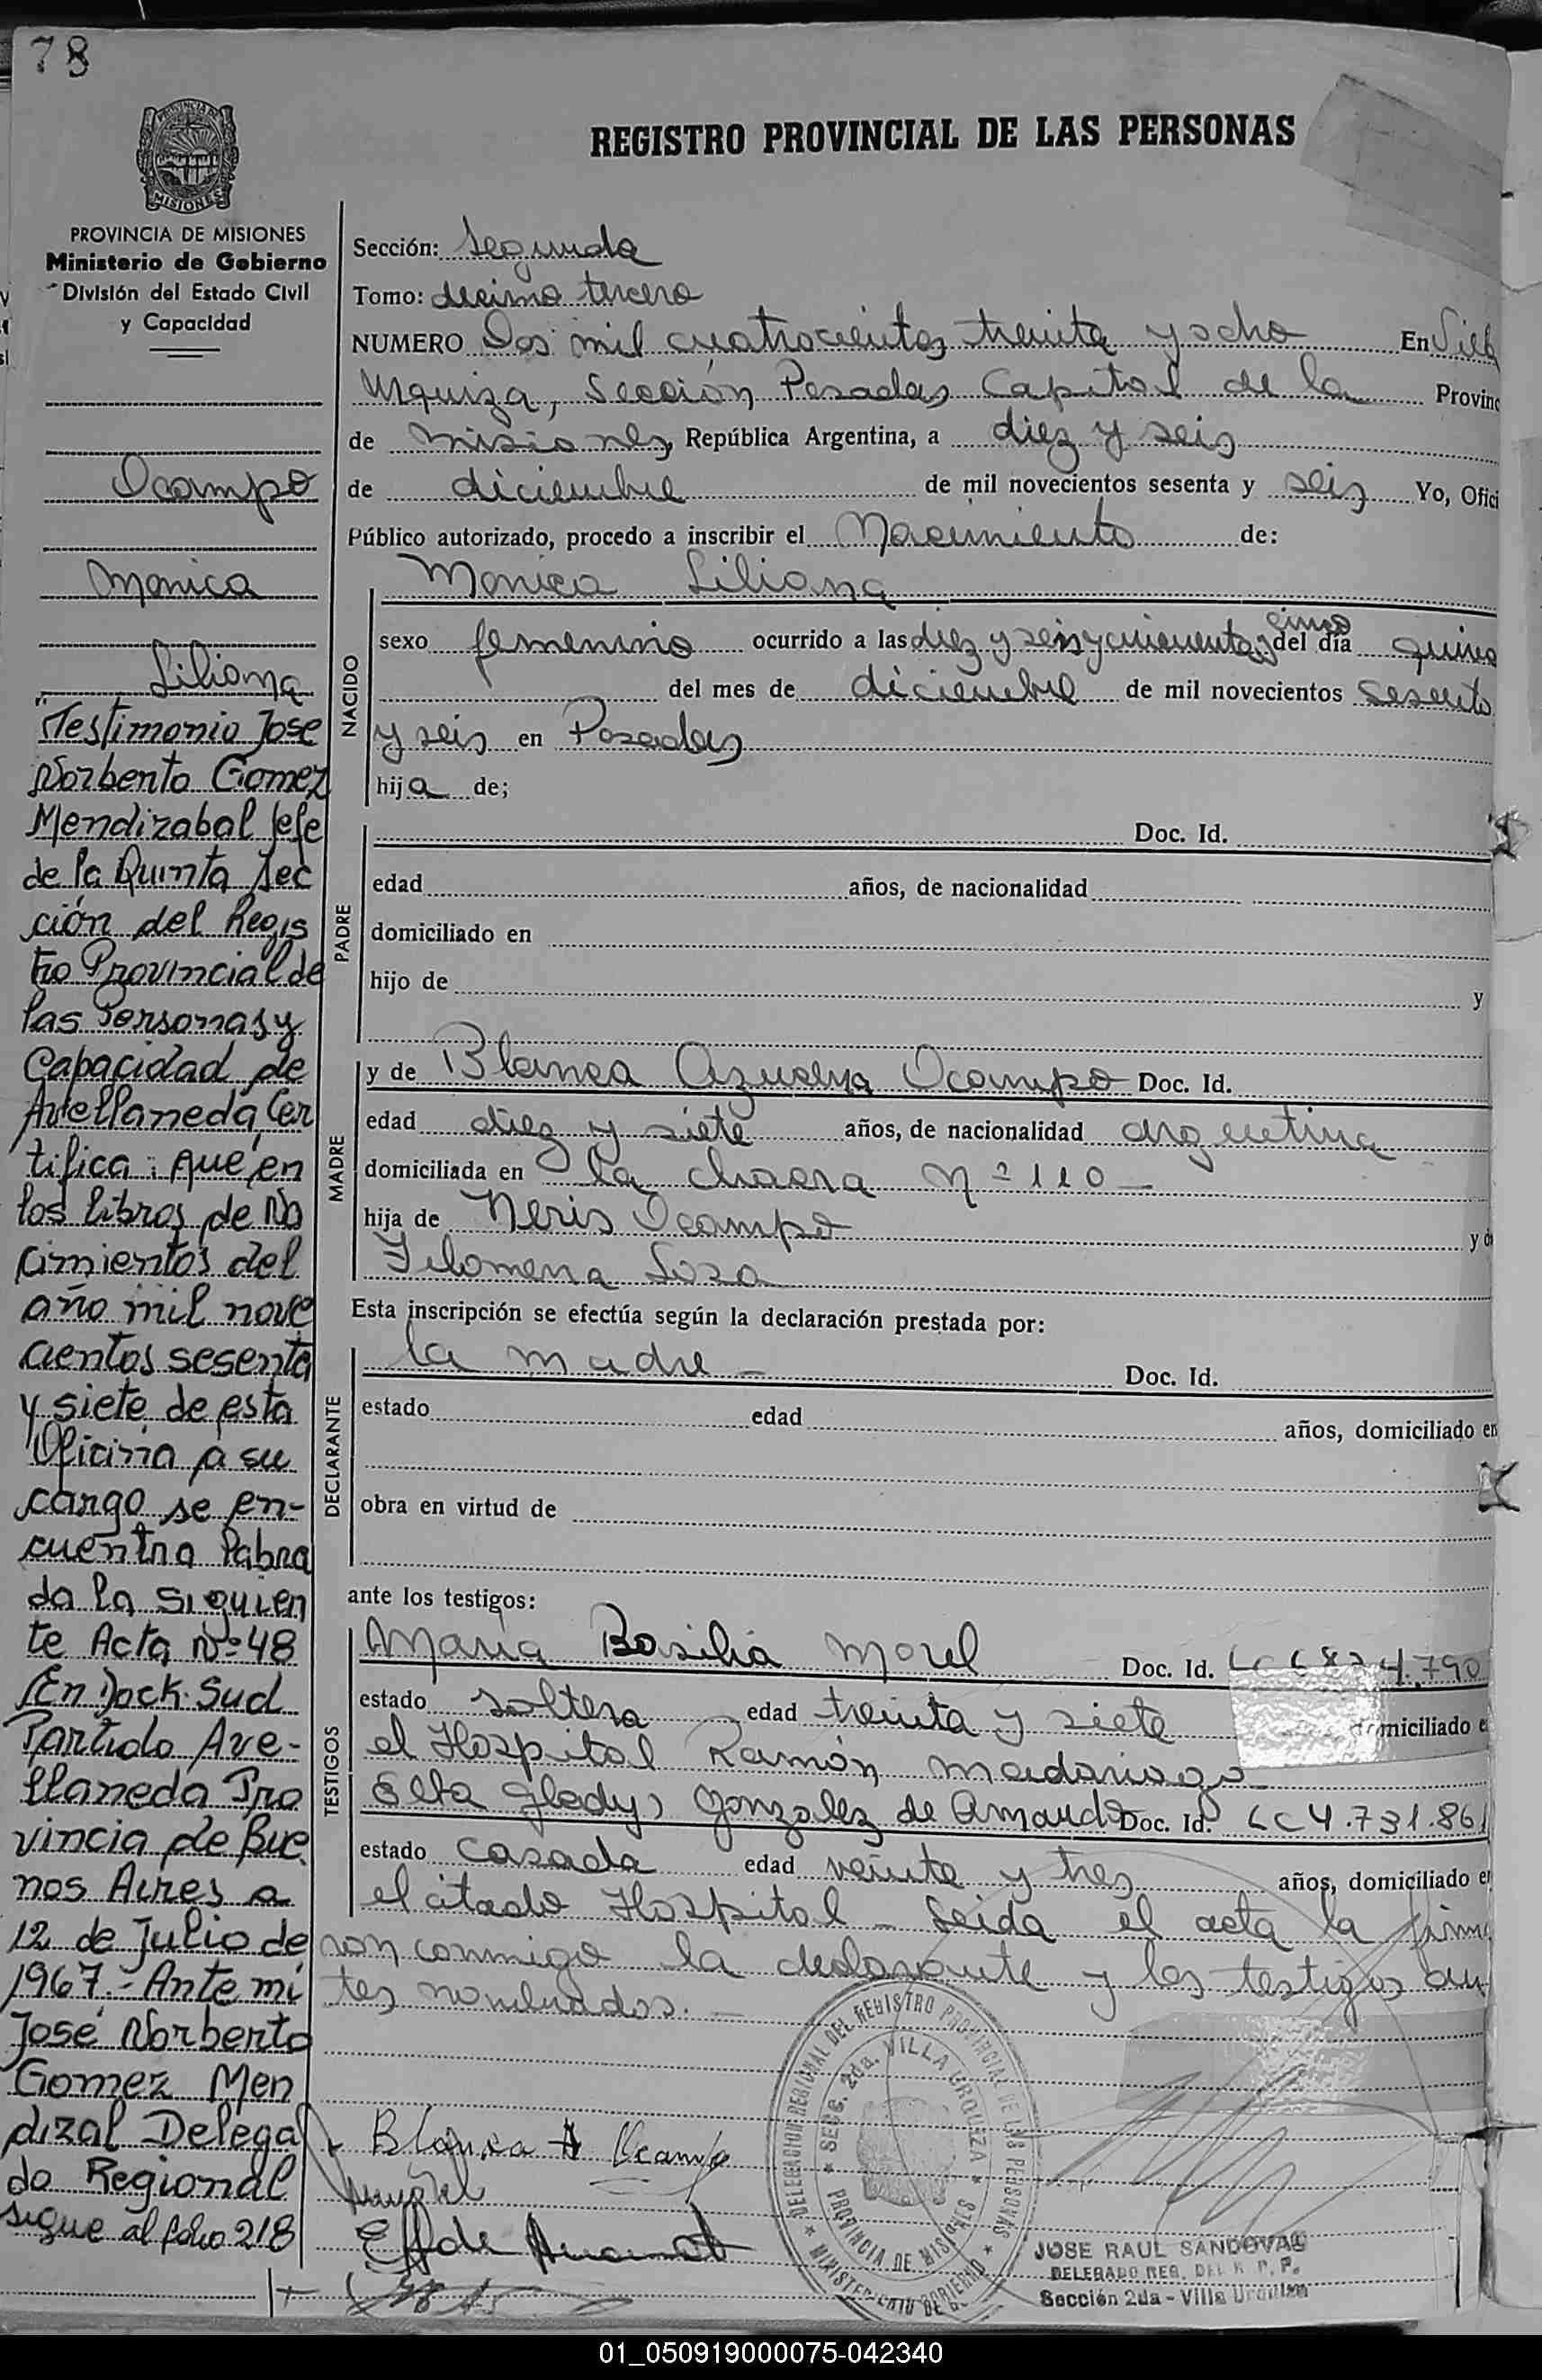 78
REGISTRO PROVINCIAL DE LAS PERSONAS
PROVINCIA DE MISIONES
Ministerio de Gobierno
División del Estado Civil
y Capacidad
Ocampo
Monica
Liliana
"Testimonio Jose
Norberto Gomez
Mendizabal Jefe
de la Quinta Sec
ción del Regis
tro Provincial de
las Personas y
Capacidad de
Avellaneda, Cer
tifica: que en
los libros de Na
cimientos del
año mil nove
cientos sesenta
y siete de esta
Oficina a su
cargo se en-
cuentra labra
da la siguien
te Acta Nº 48
En Dock Sud
Partido Ave-
llaneda Pro
vincia de Bue
nos Aires a
12 de Julio de
1967.- Ante mi
José Norberto
Gomez Men
dizal Delega
do Regional
sigue al folio 218
Sección: Segunda
Tomo: decimo tercero
NUMERO Dos mil cuatrocientos treinta y ocho En Villa
Urquiza, Sección Posadas Capital de la Provinc
de Misiones, República Argentina, a diez y seis
de diciembre de mil novecientos sesenta y seis Yo, Ofici
Público autorizado, procedo a inscribir el Nacimiento de:
Monica Liliana
NACIDO
sexo femenino ocurrido a las diez y seis y cincuenta y cinco del día quince
del mes de diciembre de mil novecientos sesenta
y seis en Posadas
hija de;
PADRE
Doc. Id.
edad años, de nacionalidad
domiciliado en
hijo de y
MADRE
y de Blanca Azucena Ocampo Doc. Id.
edad diez y siete años, de nacionalidad argentina
domiciliada en la chacra Nº 110 -
hija de Neris Ocampo y d
Filomena Sosa
Esta inscripción se efectúa según la declaración prestada por:
DECLARANTE
la madre - Doc. Id.
estado edad años, domiciliado en
obra en virtud de
ante los testigos:
TESTIGOS
Maria Basilia Morel Doc. Id. LC 4.790
estado soltera edad treinta y siete domiciliado e
el Hospital Ramón Madariaga
Elba Gladys Gonzalez de Doc. Id. LC 4.731.861
estado casada edad veinte y tres años, domiciliado en
el citado Hospital - Leida el acta la firma
ron conmigo la declarante y los testigos an
tes nombrados. -
Blanca A Ocampo
DELEGACION REGIONAL DEL REGISTRO PROVINCIAL DE LAS PERSONAS
SECC. 2da. VILLA URQUIZA
PROVINCIA DE MISIONES
MINISTERIO DE GOBIERNO
JOSE RAUL SANDOVAL
DELEGADO REG. DEL R. P. P.
Sección 2da - Villa Urquiza
01_050919000075-042340